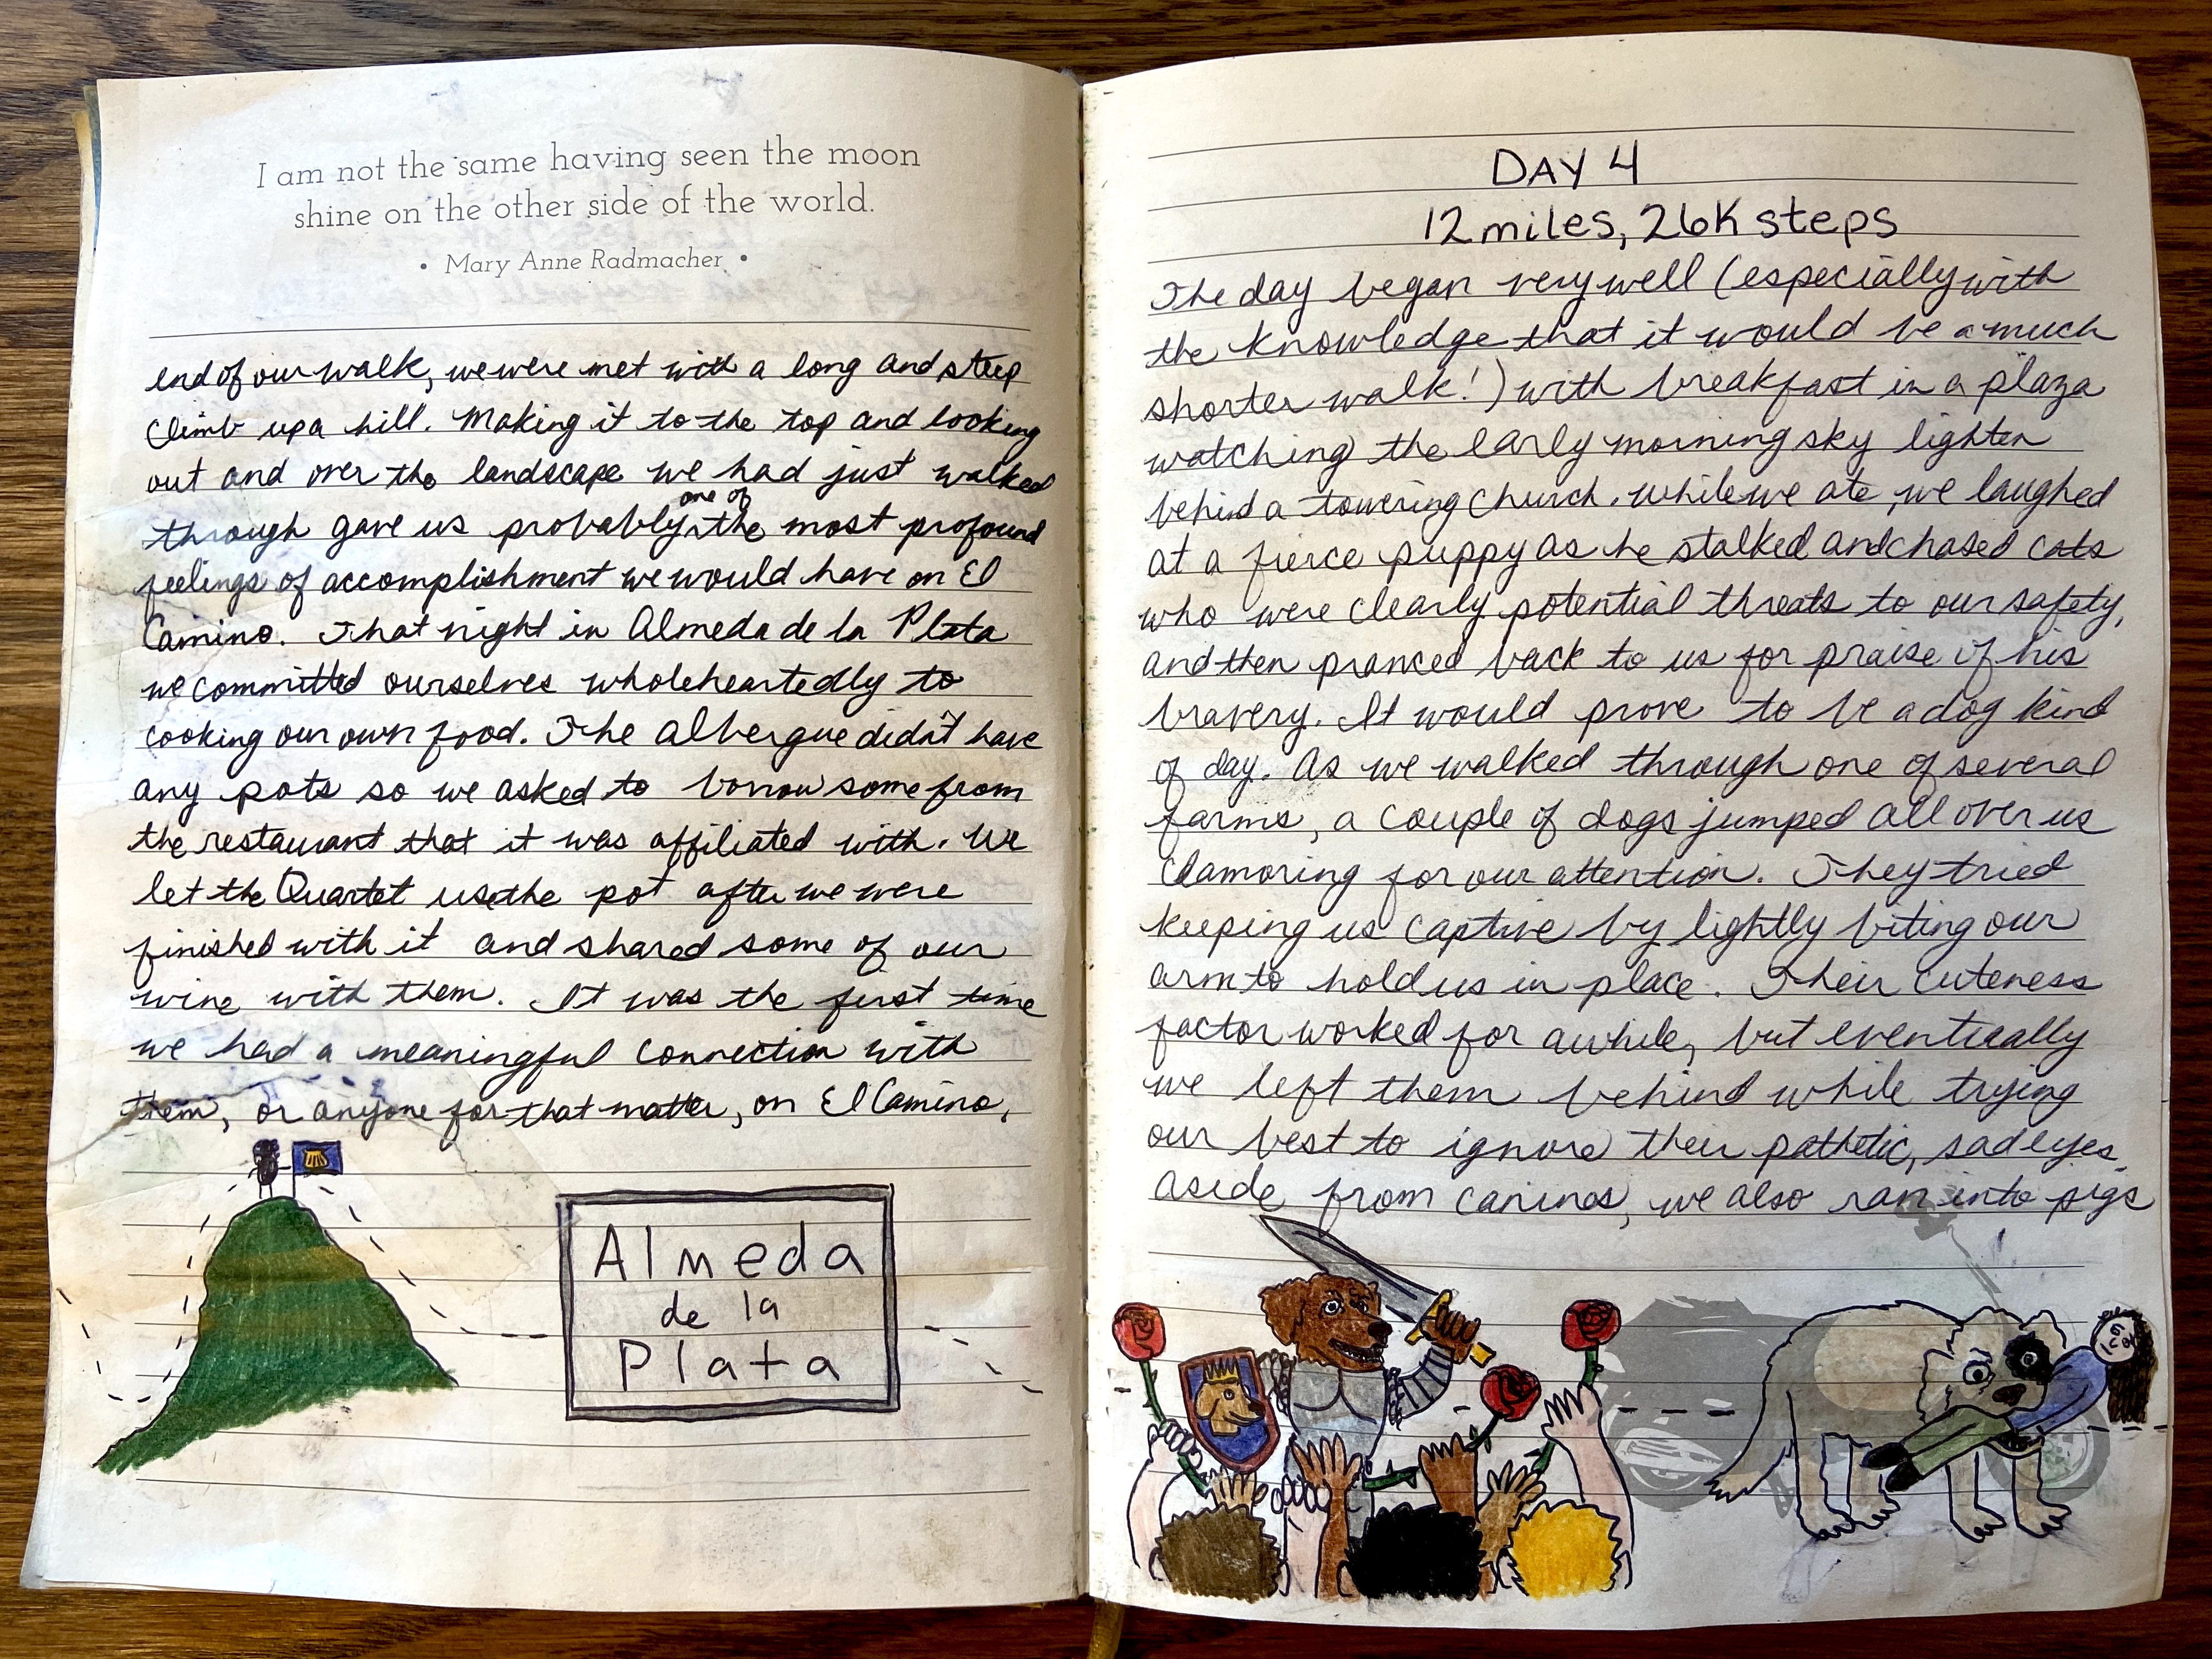 I am not the same having seen the moon
shine on the other side of the world.
• Mary Anne Radmacher •
end of our walk, we were met with a long and steep
climb up a hill. Making it to the top and looking
out and over the landscape we had just walked
through gave us probably one of the most profound
feelings of accomplishment we would have on El
Camino. That night in Almeda de la Plata
we committed ourselves wholeheartedly to
cooking our own food. The albergue didn't have
any pots so we asked to borrow some from
the restaurant that it was affiliated with. We
let the Quartet use the pot after we were
finished with it and shared some of our
wine with them. It was the first time
we had a meaningful connection with
them, or anyone for that matter, on El Camino.
Almeda
de la
Plata
DAY 4
12 miles, 26K steps
The day began very well (especially with
the knowledge that it would be a much
shorter walk!) with breakfast in a plaza
watching the early morning sky lighten
behind a towering church. While we ate, we laughed
at a fierce puppy as he stalked and chased cats
who were clearly potential threats to our safety,
and then pranced back to us for praise of his
bravery. It would prove to be a dog kind
of day. As we walked through one of several
farms, a couple of dogs jumped all over us
clamoring for our attention. They tried
keeping us captive by lightly biting our
arm to hold us in place. Their cuteness
factor worked for awhile, but eventually
we left them behind while trying
our best to ignore their pathetic, sad eyes.
Aside from canines, we also ran into pigs